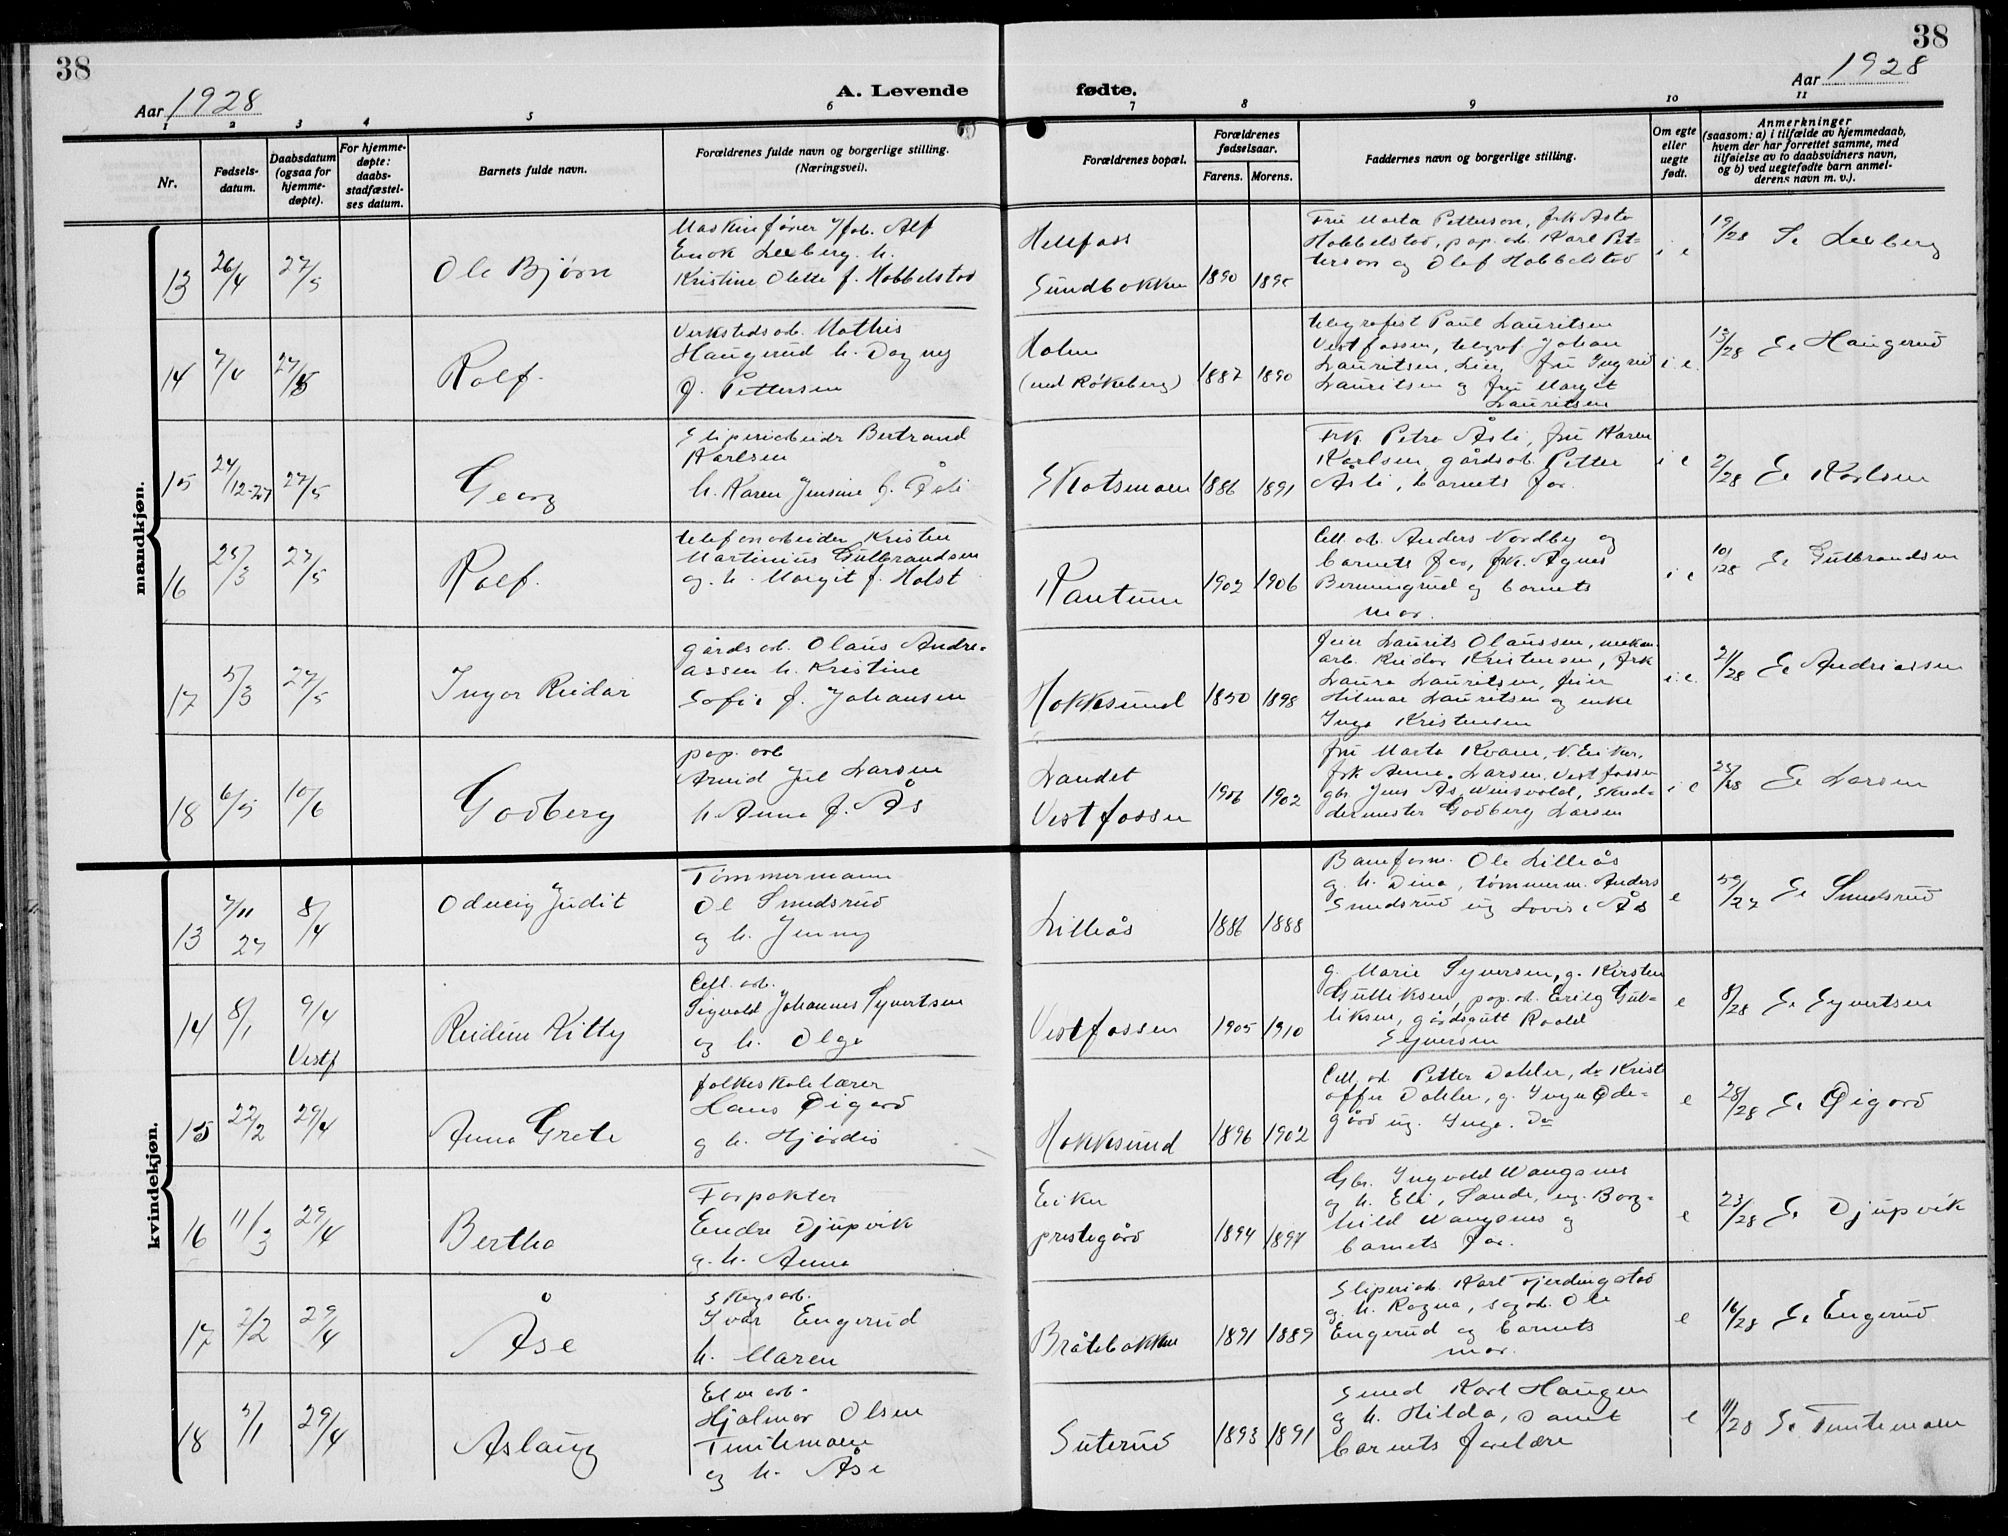 38
38
Aar 1928
A. Levende
fødte.
Aar 1928
1 2 3 4 5 6 7 8 9 10 11
Nr.
Fødsels-
datum.
Daabsdatum
(ogsaa for
hjemme-
døpte).
For hjemme-
døpte:
daabs-
stadfæstel-
ses datum.
Barnets fulde navn.
Forældrenes fulde navn og borgerlige stilling.
(Næringsvei).
Forældrenes bopæl.
Forældrenes
fødselsaar.
Farens. Morens.
Faddernes navn og borgerlige stilling.
Om egte
eller
uegte
født.
Anmerkninger
(saasom: a) i tilfælde av hjemmedaab,
hvem der har forrettet samme, med
tilføielse av to daabsvidners navn,
og b) ved uegtefødte barn anmel-
derens navn m. v.).
mandkjøn.
13
26/4
27/5
Ole Bjørn
Maskinfører Alf
Enok Lexberg h.
Kristine Olette f. Hobbelstad
Hellfoss
Sundbakken
1890
Fru Marta Petterson, frk Asta
Hobbelstad, pap. arb. Karl Pet-
terson og Olaf Hobbelstad
i e
19/28 Se Lexberg
14
7/4
27/5
Rolf.
Verkstedsarb. Mathis
Haugerud h. Dagny
f. Pettersen
Holm
(ved Røkeberg)
1887
1890
telegrafist Paul Lauritsen
Vestfossen, telegraf. Johan
Lauritsen, Lier, fru Ingrid
Lauritsen og fru Margit
Lauritsen
i. e.
13/28 Se Haugerud
15
24/12-27
27/5
Georg
Sliperiarbeider Bertrand
Karlsen
h. Karen Jensine f. Åsli
Skotsmoen
1886
1891
Frk. Petra Åsli, fru Karen
Karlsen, gårdsarb. Petter
Åsli, barnets far.
i e
2/28 Se Karlsen
16
25/3
27/5
Rolf.
telefonarbeider Kristen
Martinius Gulbrandsen
og h. Margit f. Holst
Rantum
1902
1906
Cell. arb. Anders Nordby og
barnets far, frk. Agnes
Bermingrud og barnets
mor.
i e
10/28 Se Gulbrandsen
17
5/3
27/5
Ingar Reidar
gårdsarb. Olaus Andre-
assen h. Kristine
Sofie f. Johansen
Hokksund
1898
Laurits Olaussen, mekan.
arb. Reidar Kristensen, frk
Laura Lauritsen,
Hilmar Lauritsen og enke
Inga Kristensen
i. e.
21/28 Se Andreassen
18
6/5
10/6
Godberg
pap. arb
Arnid Jul Larsen
h. Anna f. Ås
Landet
Vestfossen
1906
1902
fru Marta Kvam, N. Eiker,
frk Anna Larsen, Vestfossen
gbr. Jens Ås, Winsvold, Skræd-
dermester Godberg Larsen
i e
25/28 Se Larsen
kvindekjøn.
13
7/11
27
8/4
Odveig Judit
Tømmermann
Ol. Smedsrud
og h. Jenny
Lilleås
1886
1888
Baneform. Ole Lilleås
g. h. Dina, tømmerm. Anders
Smedsrud ug Lovise Ås
e
59/27 Se Smedsrud
14
8/1
9/4
Vestf
Reidun Kitty
Cell. arb.
Sigvald Johannes Syvertsen
og h. Olga
Vestfossen
1905
1910
g. Marie Syversen, g. Kirsten
Gulliksen, pap. arb. Erling Gul-
liksen, gårdsgutt Roald
Syversen
e
8/28 Se Syvertsen
15
22/2
29/4
Anna Grete
folkeskolelærer
Hans Øigard
g h. Hjørdis
Hokksund
1896
1902
Cell. arb Petter Dahler, do Krist
offer Dahler, g. Inga Øde-
gård ug. Inga. Do
e
28/28 Se Øigard
16
11/3
29/4
Bertha
Forpakter
Endre Djupvik
g. h. Anna
Eiker
prestegård
1894
1897
Gbr. Ingvald Wangsnes
og h. Eli, Sande, ug. Borg-
hild Wangsnes og
barnets far.
e
23/28 Se Djupvik
17
2/2
29/4
Åse
Skogsarb.
Ivar Engerud
h. Maren
Bråtebakken
1891
1889
Sliperiarb. Karl Tjerdingstad
g. h. Ragna, sagarb. Ole
Engerud og barnets
mor.
e
16/28 Se Engerud
18
5/1
29/4
Aslaug
Elvearb.
Hjalmar Olsen
Tuutemoen
og h. Åse
Suterud
1893
1891
Smed Karl Haugen
g h. Hilda, samt
barnets foreldre
e
11/28 Se Tuutemoen